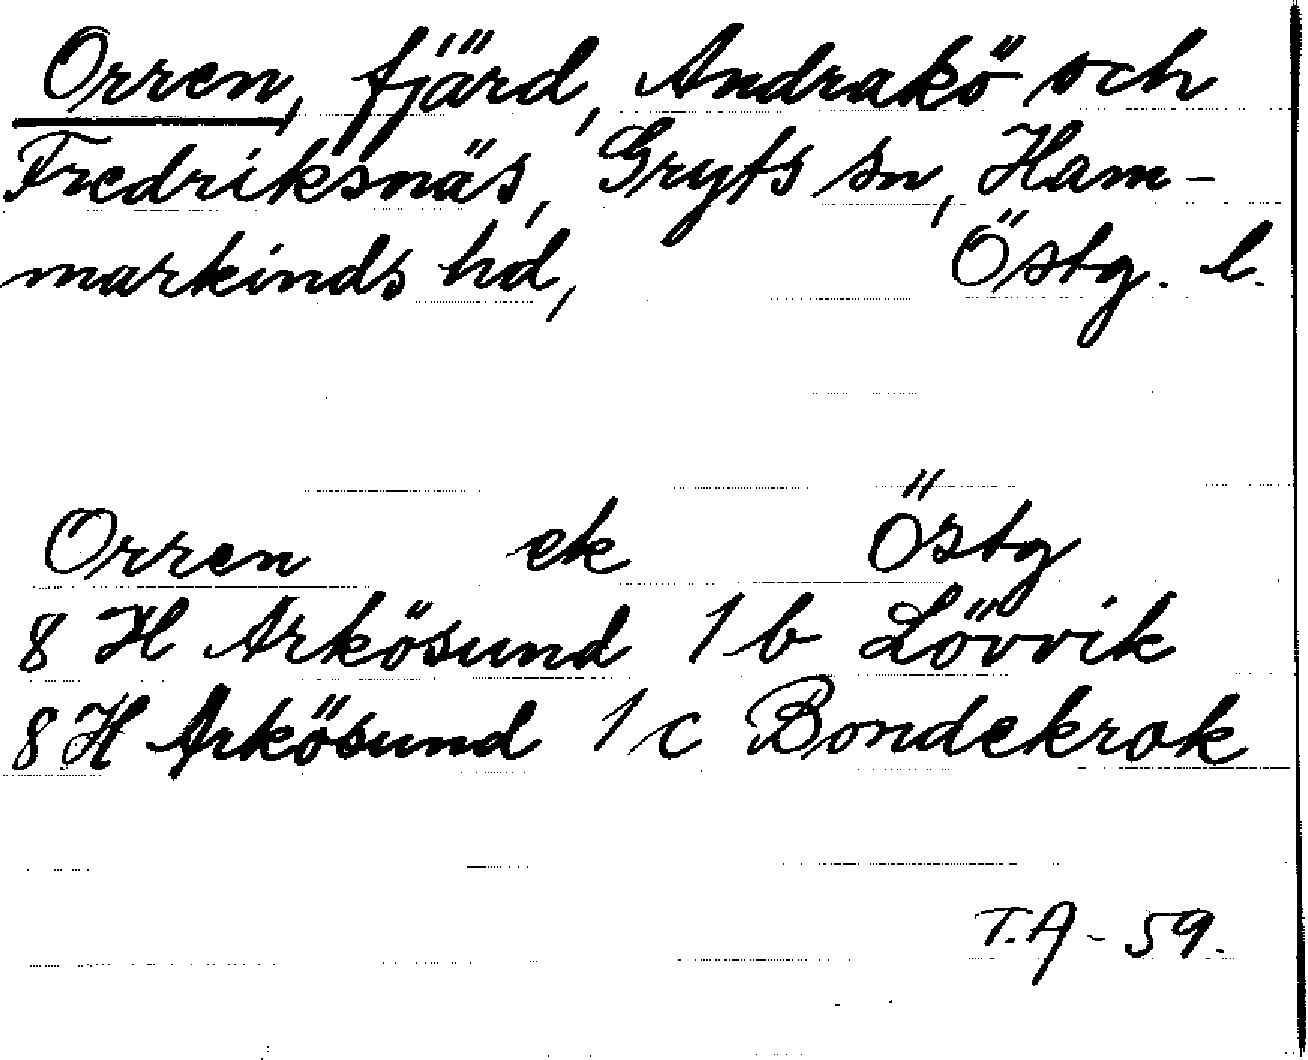 Orren, fjärd, Andrakö och
Fredriksnäs, Gryts sn, Ham-
markinds hd, Östg. l.
Orren ek Östg
8 H Arkösund 1 b Lövvik
8 H Arkösund 1 c Bondekrok
T.A - 59.